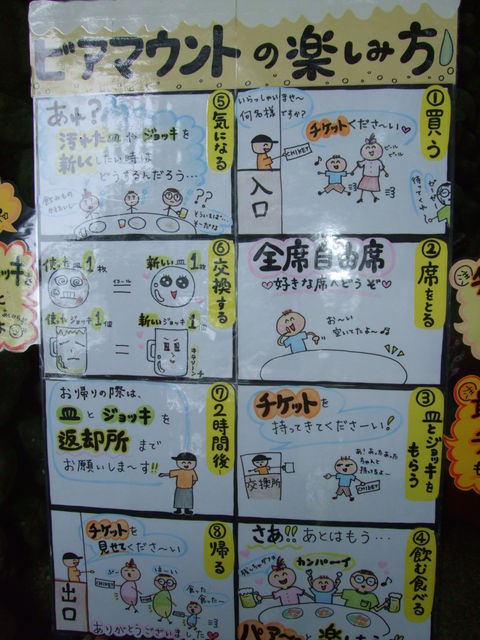 ビアマウントの楽しみ方
①買う
いらっしゃいませ〜
何名様ですか?
チケットくださ〜い♡
CHIKET
ビール
ビール
入口
②席をとる
全席自由席
♡好きな席へどうぞ♡
お〜い
空いてたよ〜♫
③皿とジョッキをもらう
チケットを
持ってきてくださーい!
あ!あったあった
ちゃんと
持ってるよ〜
CHIKET
交換所
④飲む食べる
さあ!!あとはもう…
カンパーイ
パァ〜っと楽し
⑤気になる
あれ?
汚れた皿やジョッキを
新しくしたい時は
どうするんだろう…
飲みもの
??
⑥交換する
使った皿1枚
イコール
新しい皿1枚
=
使ったジョッキ1個
新しいジョッキ1個
=
⑦2時間後…
お帰りの際は、
皿とジョッキを
返却所まで
お願いしま〜す!!
⑧帰る
チケットを
見せてくださ〜い
CHIKET
はーい
食った
食った〜
CHIKET
出口
ありがとうございました♥